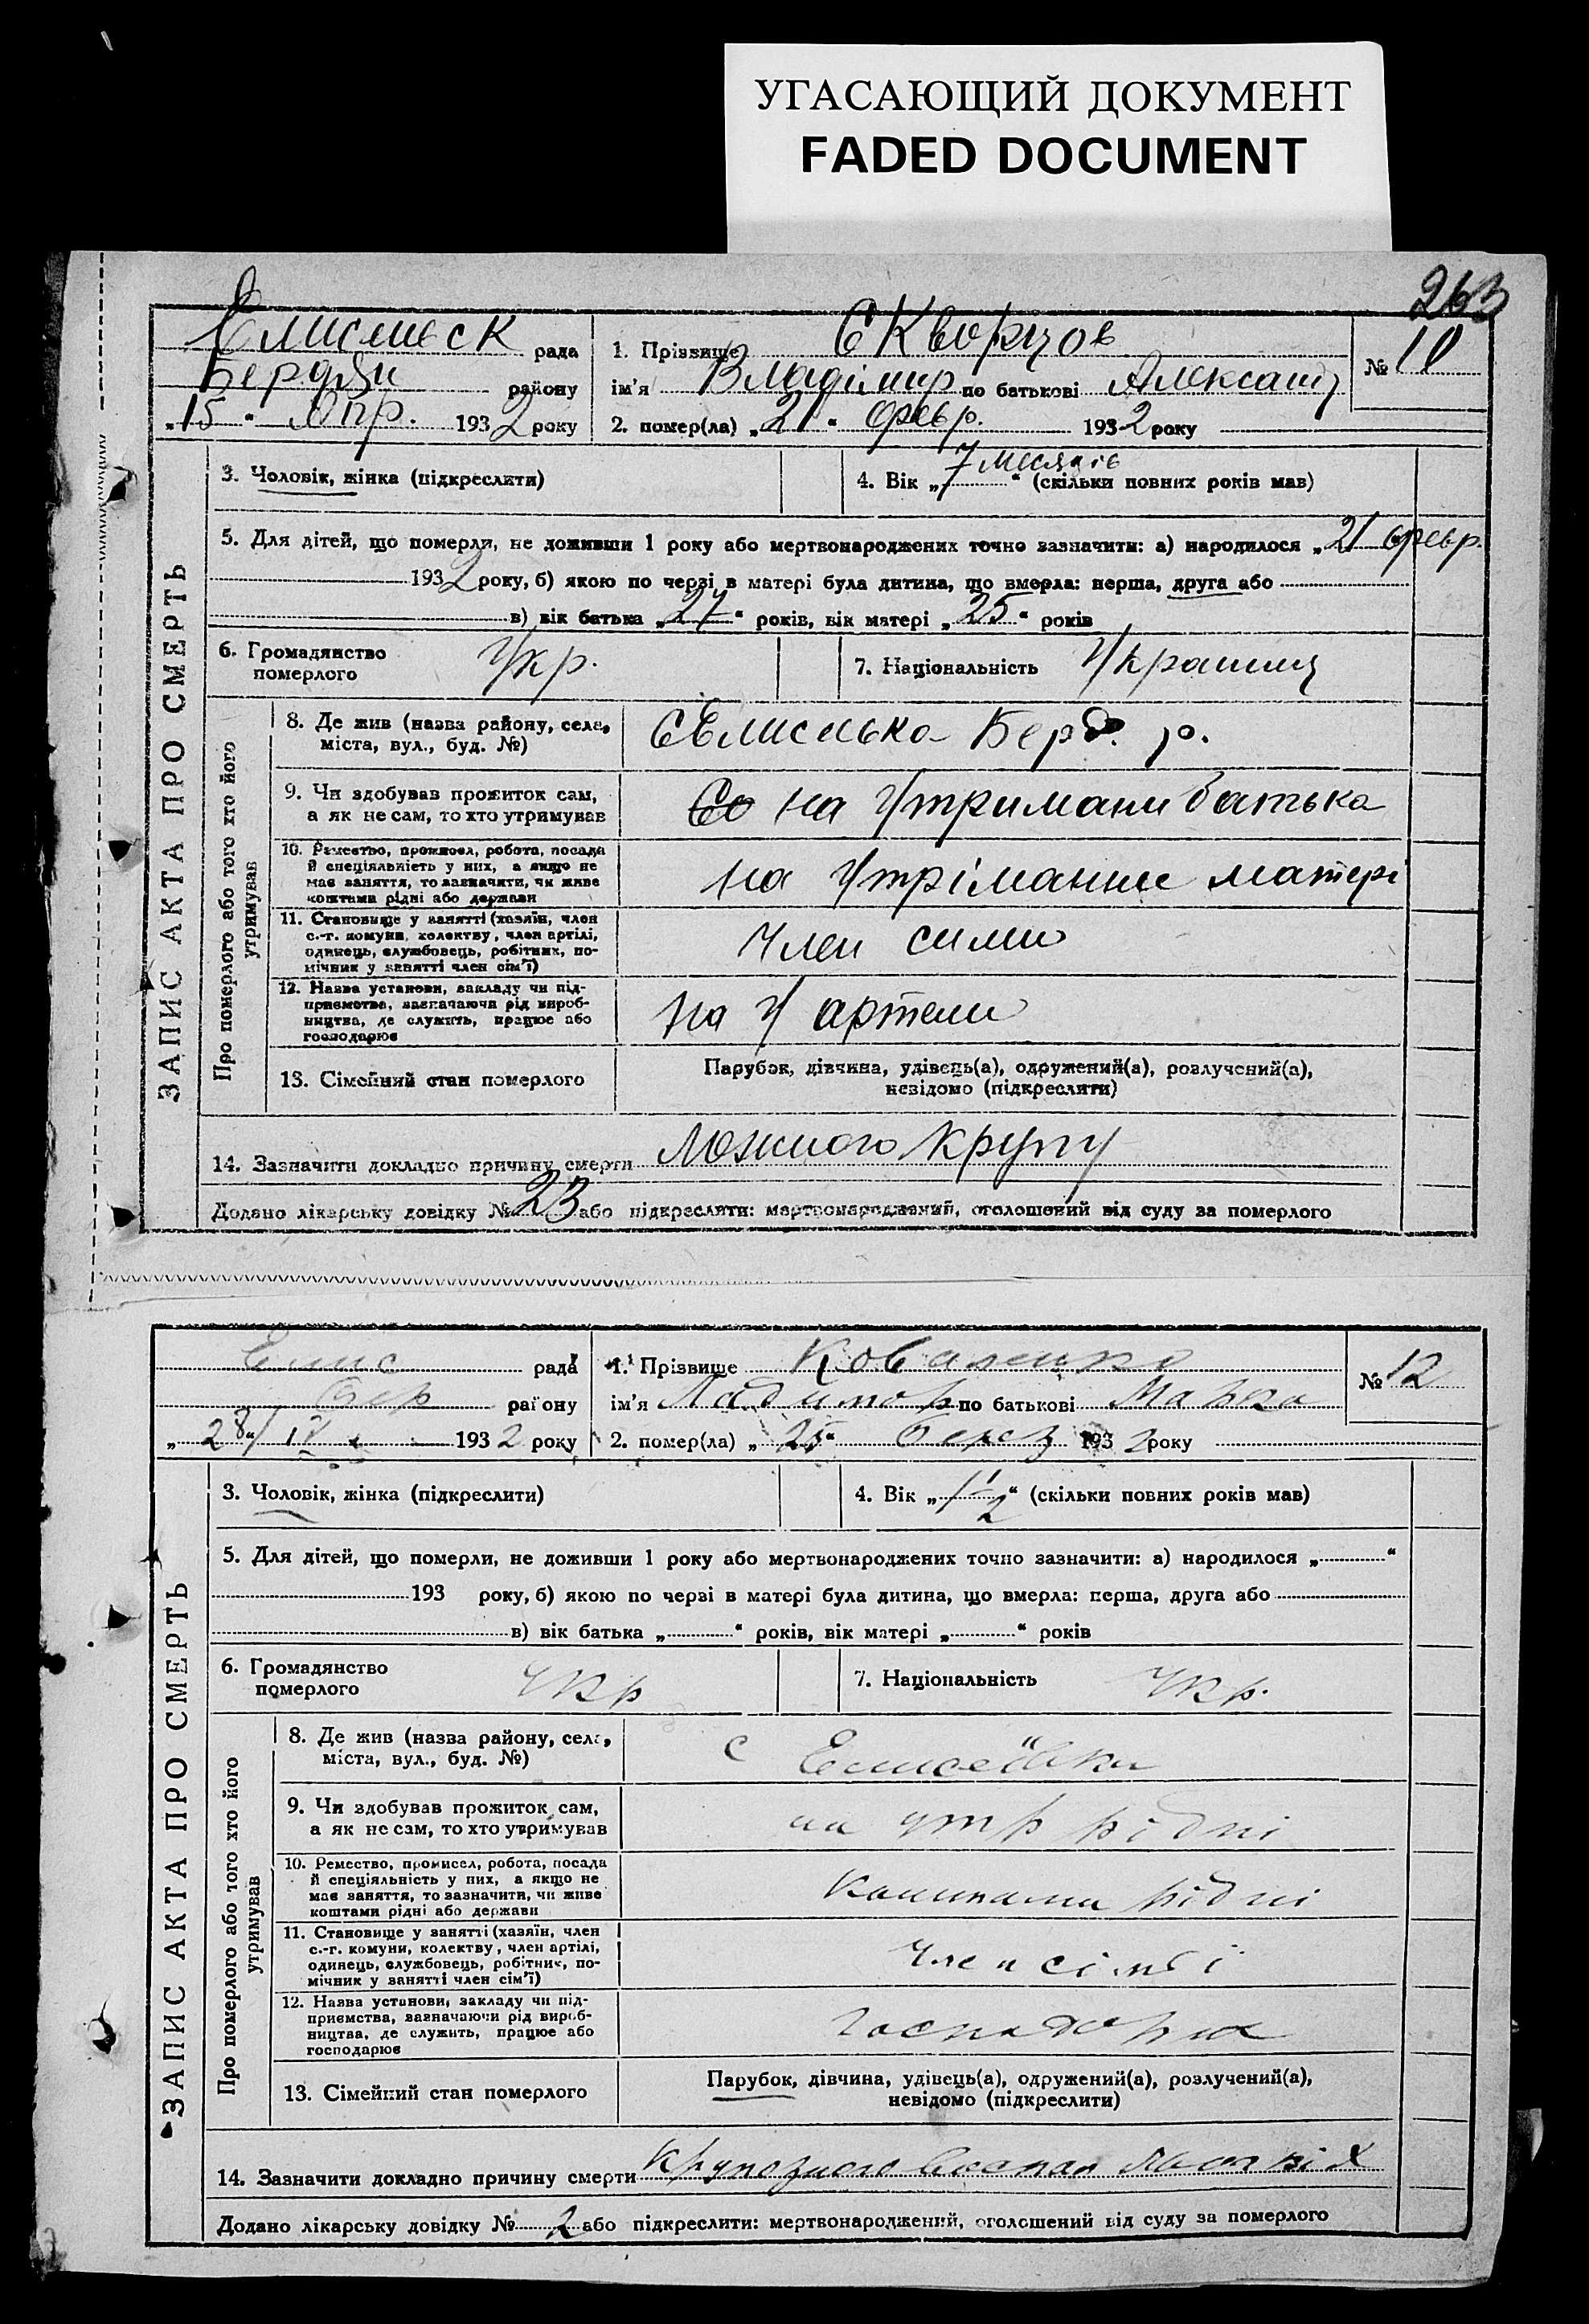 УГАСАЮЩИЙ ДОКУМЕНТ
FADED DOCUMENT
263
рада
Бердян району
„15“ Апр. 1932 року
1. Прізвище Скворцов
ім'я Владімир по батькові Александ
2. помер(ла) „21“ февр. 1932 року
№ 10
ЗАПИС АКТА ПРО СМЕРТЬ
3. Чоловік, жінка (підкреслити)
4. Вік „7 месяців“ (скільки повних років мав)
5. Для дітей, що померли, не доживши 1 року або мертвонароджених точно зазначити: а) народилося „21 февр.
1932 року, б) якою по черзі в матері була дитина, що вмерла: перша, друга або
в) вік батька „27“ років, вік матері „25“ років
6. Громадянство померлого Укр.
7. Національність Украинц
Про померлого або того хто його утримував
8. Де жив (назва району, села,
міста, вул., буд. №)
Берд. р.
9. Чи здобував прожиток сам,
а як не сам, то хто утримував
на Утримани батька
10. Ремество, промисел, робота, посада
й спеціяльність у них, а якщо не
має заняття, то зазначити, чи живе
коштами рідні або держави
на Утріманне матері
11. Становище у занятті (хазяїн, член
с.-г. комуни, колектву, член артілі,
одинець, службовець, робітник, по-
мічник у занятті член сім'ї)
Член сими
12. Назва установи, закладу чи під-
приємства, зазначаючи рід вироб-
ництва, де служить, працює або
господарює
на У артели
13. Сімейний стан померлого
Парубок, дівчина, удівець(а), одружений(а), розлучений(а),
невідомо (підкреслити)
14. Зазначити докладно причину смерти Ложного крупу
Додано лікарську довідку № 23 або підкреслити: мертвонароджений, оголошений від суду за померлого
Елис рада
Бер району
„28“/IV 1932 року
1. Прізвище Коваленко
ім'я Ладимор по батькові Марка
2. помер(ла) „25“ берез 1932 року
№ 12
ЗАПИС АКТА ПРО СМЕРТЬ
3. Чоловік, жінка (підкреслити)
4. Вік „1 1/2“ (скільки повних років мав)
5. Для дітей, що померли, не доживши 1 року або мертвонароджених точно зазначити: а) народилося „ “
193 року, б) якою по черзі в матері була дитина, що вмерла: перша, друга або
в) вік батька „ “ років, вік матері „ “ років
6. Громадянство померлого Укр
7. Національність Укр.
Про померлого або того хто його утримував
8. Де жив (назва району, села,
міста, вул., буд. №)
с Елисеївки
9. Чи здобував прожиток сам,
а як не сам, то хто утримував
на утр рідні
10. Ремество, промисел, робота, посада
й спеціяльність у них, а якщо не
має заняття, то зазначити, чи живе
коштами рідні або держави
коштами рідні
11. Становище у занятті (хазяїн, член
с.-г. комуни, колектву, член артілі,
одинець, службовець, робітник, по-
мічник у занятті член сім'ї)
член сімьї
12. Назва установи, закладу чи під-
приємства, зазначаючи рід вироб-
ництва, де служить, працює або
господарює
13. Сімейний стан померлого
Парубок, дівчина, удівець(а), одружений(а), розлучений(а),
невідомо (підкреслити)
14. Зазначити докладно причину смерти Крупозного
Додано лікарську довідку № 2 або підкреслити: мертвонароджений, оголошений від суду за померлого